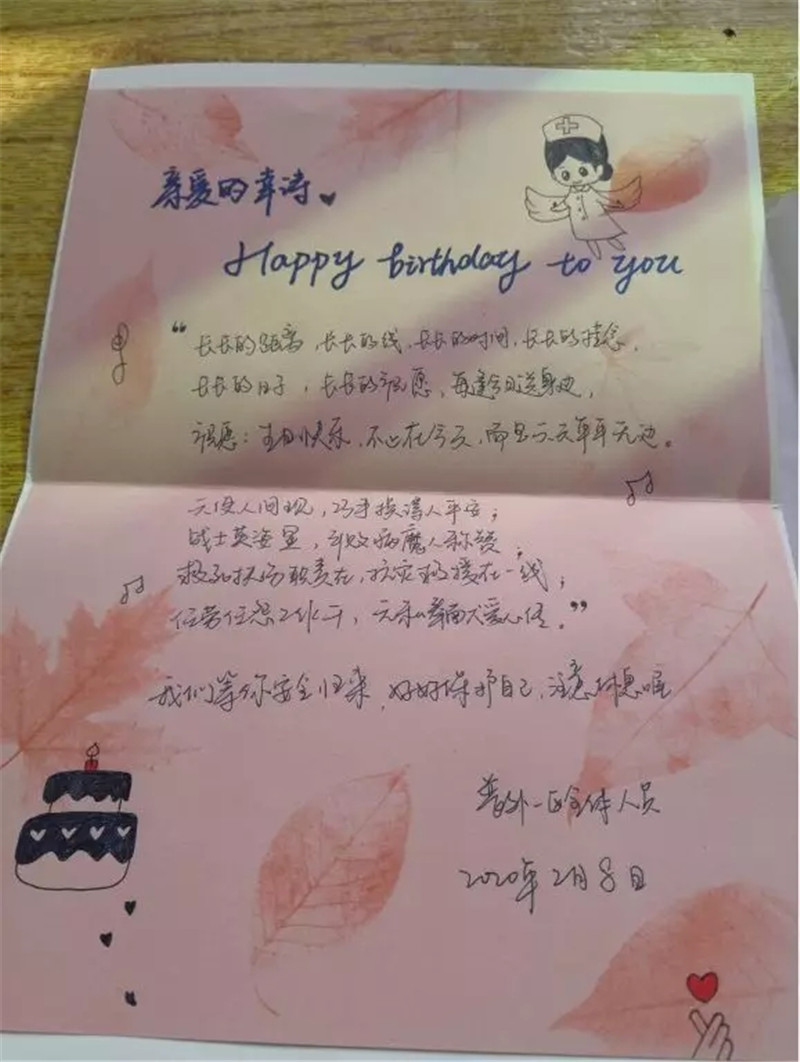 亲爱的幸涛
Happy birthday to you
“长长的距离，长长的线，长长的时间，长长的挂念，
长长的日子，长长的祝愿，每逢今日送身边，
祝愿：生日快乐，不止在今天，而且天天年年无边。
天使人间现，巧手换得人平安；
战士英姿显，斗败病魔人称赞；
救死扶伤职责在，抗灾救援在一线；
任劳任怨工作干，无私奉献大爱心怪。”
我们等你安全归来，好好保护自己，注意休息喔
普外一区全体人员
2020年2月8日